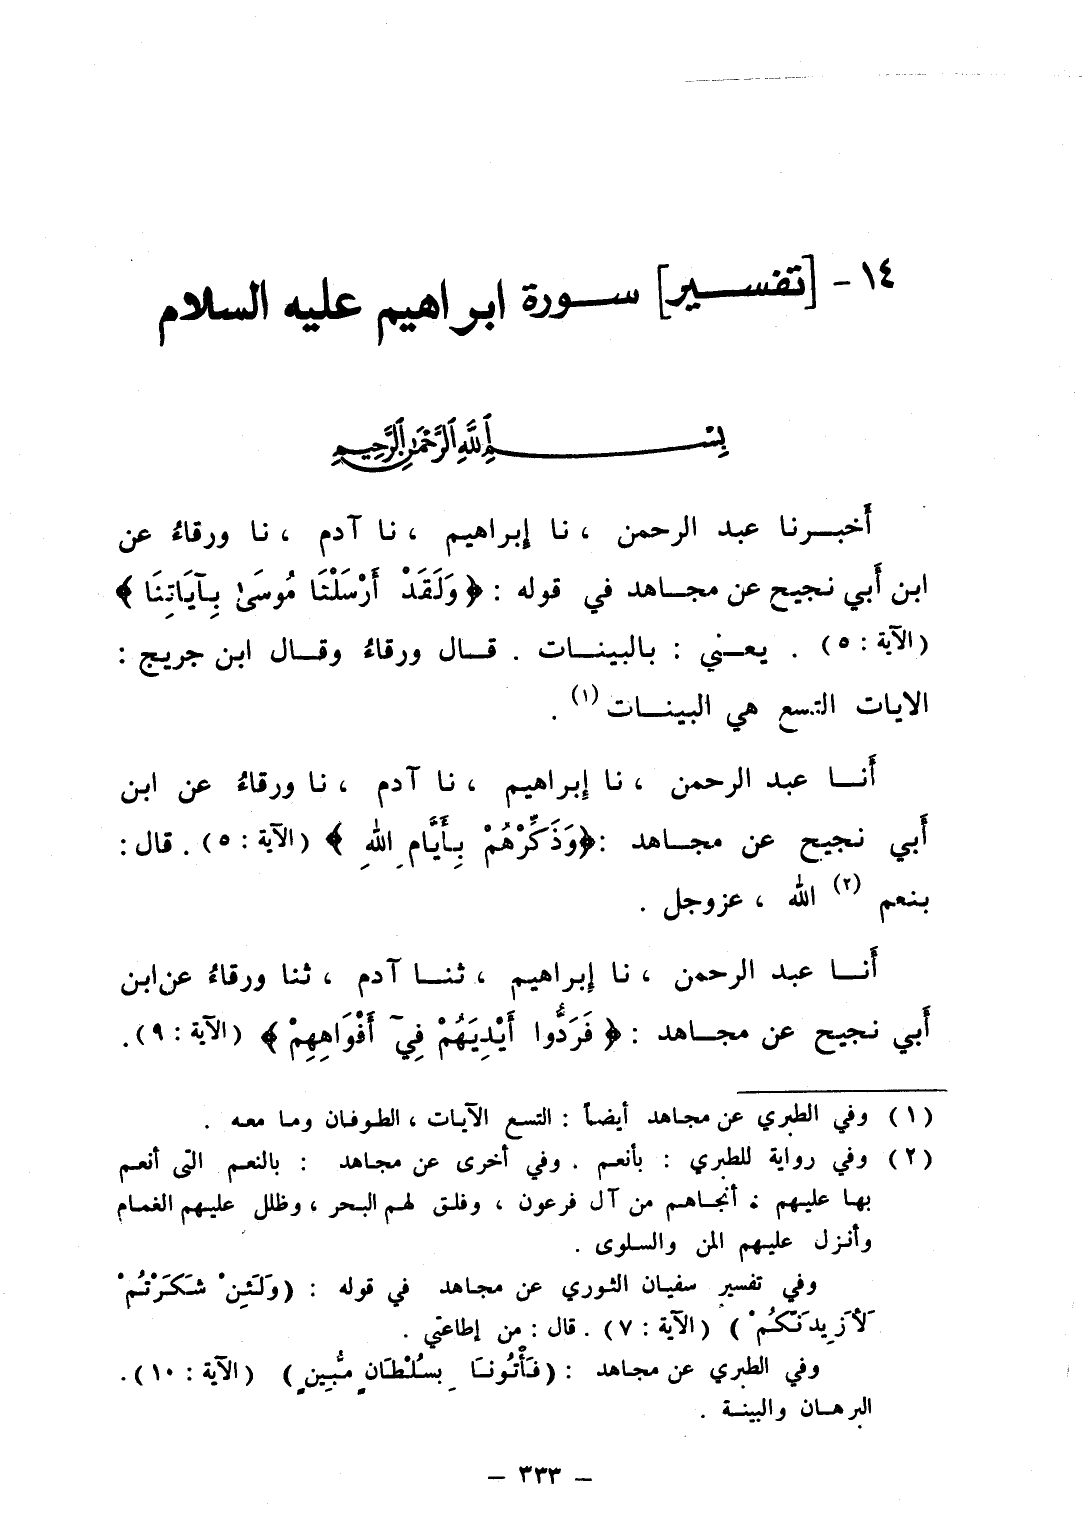 ١٤ - [تفسير] سورة ابراهيم عليه السلام
بِسْمِ اللَّهِ الرَّحْمَٰنِ الرَّحِيمِ
أَخبرنا عبد الرحمن ، نا إِبراهيم ، نا آدم ، نا ورقاءُ عن
ابن أَبي نجيح عن مجاهد في قوله : ﴿ وَلَقَدْ أَرْسَلْنَا مُوسَىٰ بِآيَاتِنَا ﴾
(الآية : ٥) . يعني : بالبينات . قال ورقاءُ وقال ابن جريج :
الايات التسع هي البينات (١) .
أَنا عبد الرحمن ، نا إِبراهيم ، نا آدم ، نا ورقاءُ عن ابن
أَبي نجيح عن مجاهد : ﴿وَذَكِّرْهُمْ بِأَيَّامِ اللهِ ﴾ (الآية : ٥) . قال :
بنعم (٢) الله ، عزوجل .
أَنا عبد الرحمن ، نا إِبراهيم ، ثنا آدم ، ثنا ورقاءُ عن ابن
أَبي نجيح عن مجاهد : ﴿ فَرَدُّوا أَيْدِيَهُمْ فِيٓ أَفْوَاهِهِمْ ﴾ (الآية : ٩) .
(١) وفي الطبري عن مجاهد أيضاً : التسع الآيات ، الطوفان وما معه .
(٢) وفي رواية للطبري : بأنعم . وفي أخرى عن مجاهد : بالنعم التى أنعم
بها عليهم : أنجاهم من آل فرعون ، وفلق لهم البحر ، وظلل عليهم الغمام
وأنزل عليهم المن والسلوى .
وفي تفسير سفيان الثوري عن مجاهد في قوله : (وَلَئِنْ شَكَرْتُمْ
لَأَزِيدَنَّكُمْ ) (الآية : ٧) . قال : من إطاعتي .
وفي الطبري عن مجاهد : (فَأْتُونَا بِسُلْطَانٍ مُّبِينٍ) (الآية : ١٠) .
البرهان والبينة .
- ٣٣٣ -